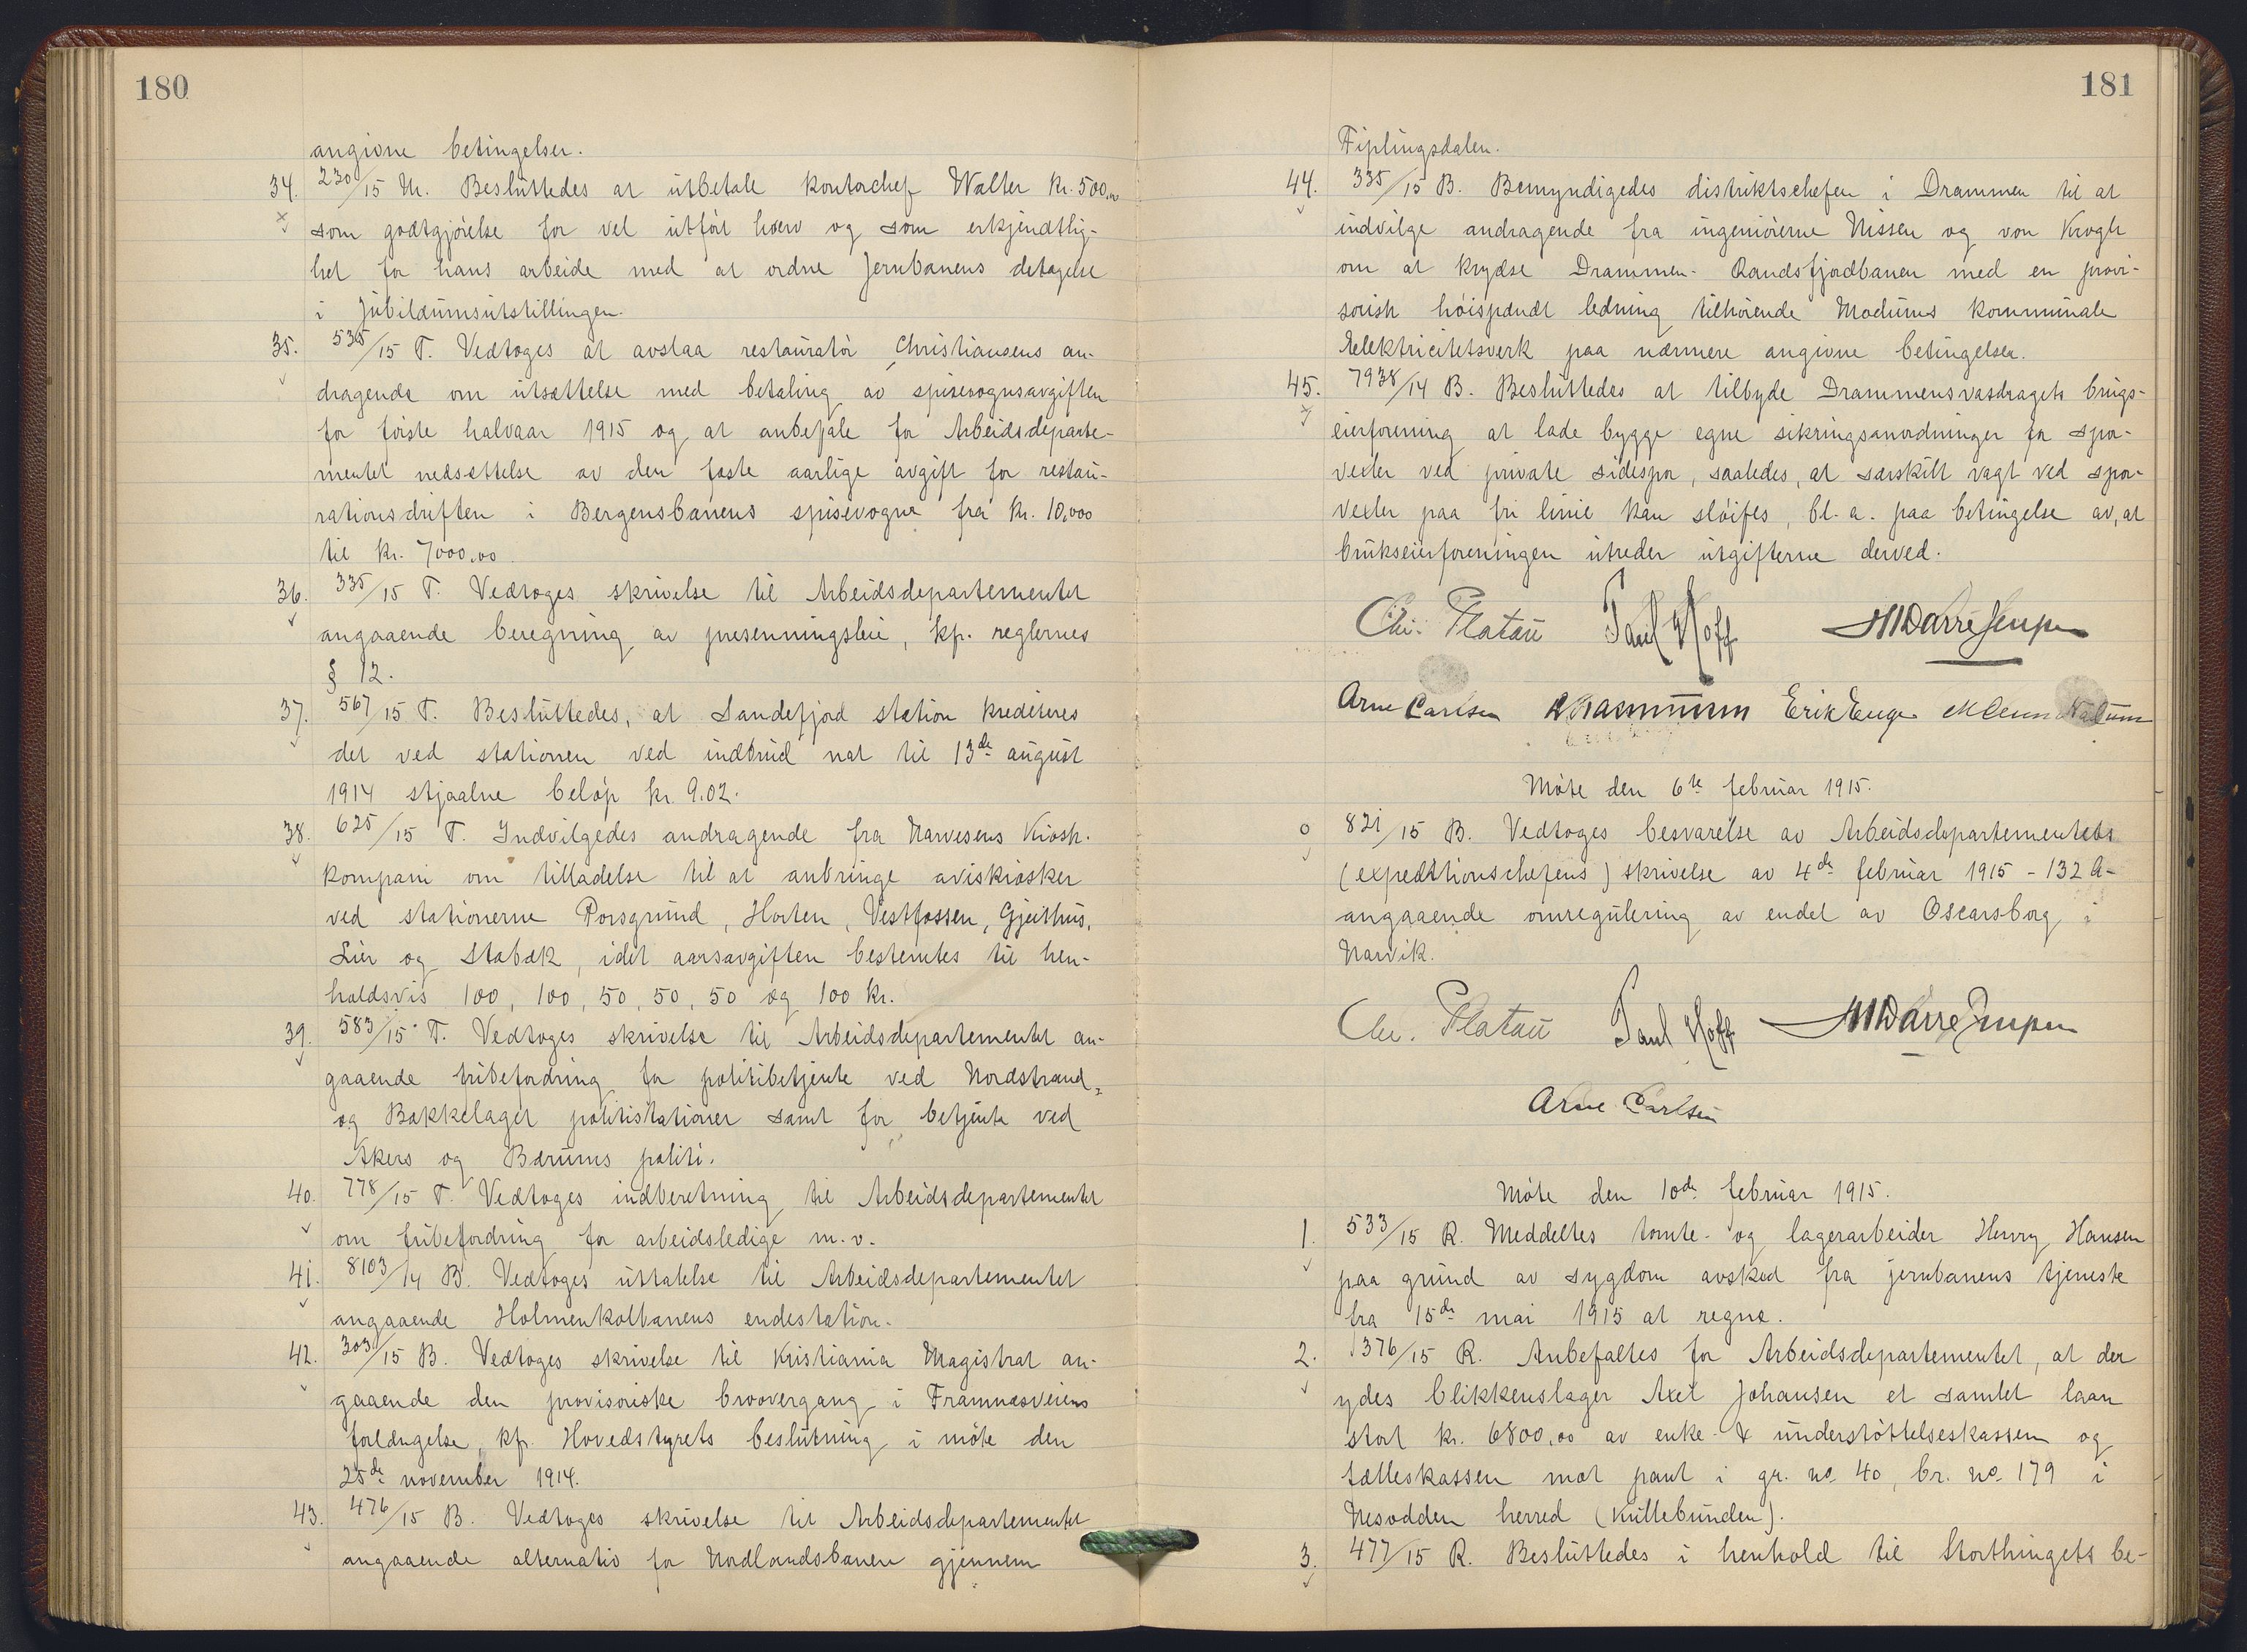 180
angivne betingelser.
34. 230/15 M. Besluttedes at utbetale kontorchef Walter kr. 500,00
som godtgjørelse for vel utført hverv og som erkjendtlig-
het for hans arbeide med at ordne Jernbanens detagelse
i Jubilæumsutstillingen.
35. 535/15 T. Vedtoges at avslaa restauratør Christiansens an-
dragende om utsættelse med betaling av spisevognsavgiften
for første halvaar 1915 og at anbefale for Arbeidsdeparte-
mentet nedsættelse av den faste aarlige avgift for restau-
rationsdriften i Bergensbanens spisevogne fra kr. 10,000
til kr. 7000,00
36. 335/15 T. Vedtoges skrivelse til Arbeidsdepartementet
angaaende beregning av presenningsleie, kfr. reglernes
§ 12.
37. 567/15 T. Besluttedes, at Sandefjord station krediteres
det ved stationen ved indbrud nat til 13de august
1914 stjaalne beløp kr. 9.02.
38. 625/15 T. Indvilgedes andragende fra Narvesens Kiosk-
kompani om tilladelse til at anbringe aviskiosker
ved stationerne Porsgrund, Horten, Vestfossen, Gjeithus,
Lier og Stabæk, idet aarsavgiften bestemtes til hen-
holdsvis 100, 100, 50, 50, 50 og 100 kr.
39. 583/15 T. Vedtoges skrivelse til Arbeidsdepartementet an-
gaaende fribefordring for politibetjente ved Nordstrand-
og Bækkelaget politistationer samt for betjente ved
Akers og Bærums politi.
40. 778/15 T. Vedtoges indberetning til Arbeidsdepartementet
om fribefordring for arbeidsledige m.v.
41. 8103/14 B. Vedtoges uttalelse til Arbeidsdepartementet
angaaende Holmenkolbanens endestation.
42. 303/15 B. Vedtoges skrivelse til Kristiania Magistrat an-
gaaende den provisoriske broovergang i Framnæsveiens
forlængelse, kfr. Hovedstyrets beslutning i møte den
25de november 1914.
43. 476/15 B. Vedtoges skrivelse til Arbeidsdepartementet
angaaende alternativ for Nordlandsbanen gjennem
181
Fiplingsdalen.
44. 335/15 B. Bemyndigedes distriktschefen i Drammen til at
indvilge andragende fra ingeniørerne Nissen og von Krogh
om at krydse Drammen-Randsfjordbanen med en provi-
sorisk høispændt ledning tilhørende Modums kommunale
elektricitetsverk paa nærmere angivne betingelser.
45. 7938/14 B. Besluttedes at tilbyde Drammensvasdragets brugs-
eierforening at lade bygge egne sikringsanordninger for spor-
vexler ved private sidespor, saaledes, at særskilt vagt ved spor-
vexler paa fri linie kan sløifes, bl. a. paa betingelse av, at
brukseierforeningen utreder utgifterne derved.
Chr. Platou Paul Hoff M Darre Jenssen
Arne Carlsen Rasmussen Erik Enge
Møte den 6te februar 1915.
821/15 B. Vedtoges besvarelse av Arbeidsdepartementets
(expeditionschefens) skrivelse av 4de februar 1915 - 132 A -
angaaende omregulering av endel av Oscarsborg i
Narvik.
Chr. Platou Paul Hoff M Darre Jenssen
Arne Carlsen
Møte den 10de februar 1915.
1. 533/15 R. Meddeltes tomte- og lagerarbeider Henry Hansen
paa grund av sygdom avsked fra jernbanens tjeneste
fra 15de mai 1915 at regne.
2. 1376/15 R. Anbefaltes for Arbeidsdepartementet, at der
ydes blikkenslager Axel Johansen et samlet laan
stort kr. 6800,00 av enke- & understøttelseskassen og
fælleskassen mot pant i gr. no. 40, br. no. 179 i
Nesodden herred (Kullebunden).
3. 477/15 R. Besluttedes i henhold til Storthingets be-